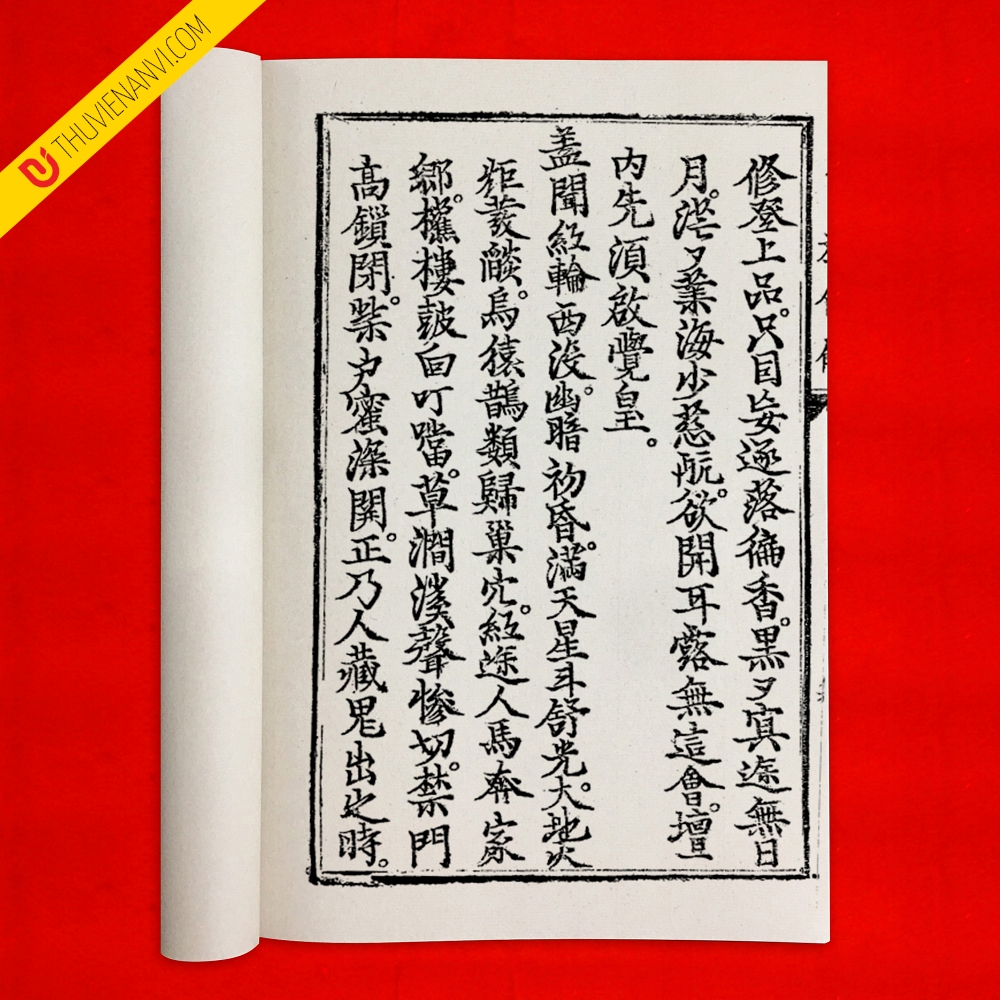 THUVIENANVI.COM
修登上品。只因妄逐落徧香。黑夕寘途無日
月。茫夕業海少慈航。欲開耳露無這會。壇
内先須啟覺皇。
盖聞紅輪西没。幽暗初昏。滿天星斗舒光。大地火
炬發燄。烏猿鵲類歸巢穴。紅途人馬奔家
鄉。樵樓鼓面叮噹。草澗溪聲慘切。禁門
高鎖閉。柴户蜜深開。正乃人藏鬼出之時。